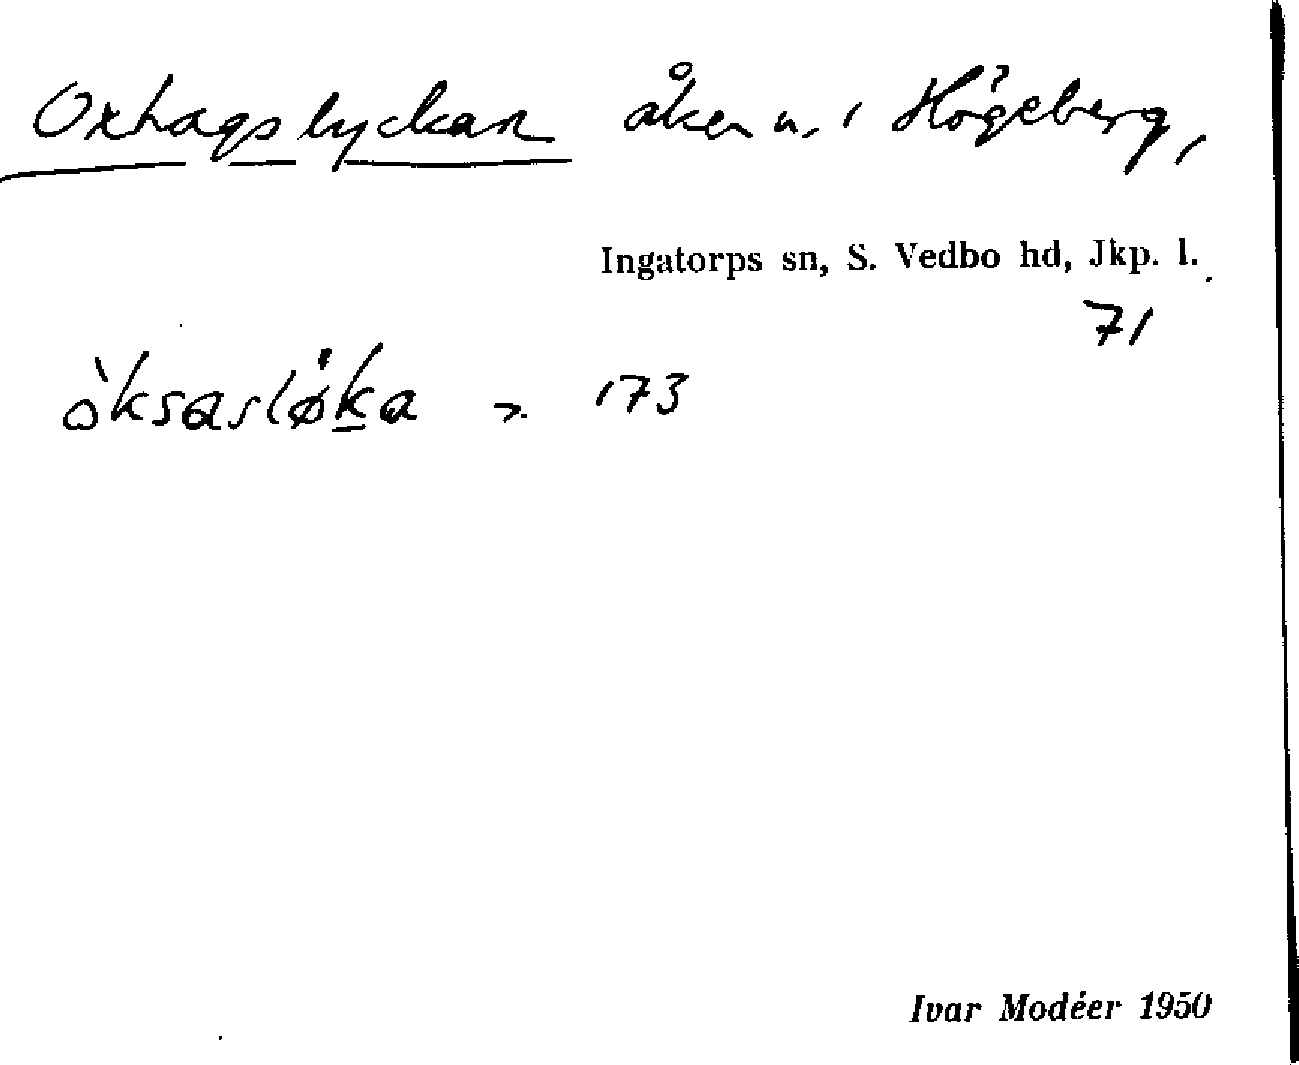 Oxhagslyckan åker n. i Högeberg,
Ingatorps sn, S. Vedbo hd, Jkp. l.
71
òksasløka 173
Ivar Modéer 1950